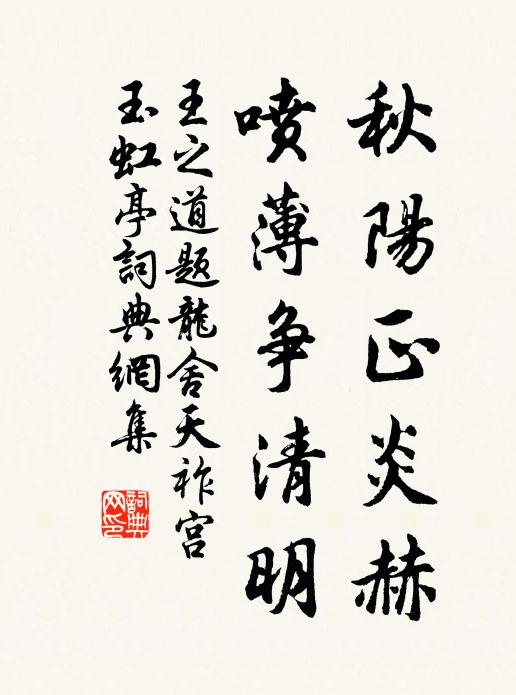 秋陽正炎赫
噴薄争清明
王之道題龍舍天祚宫
玉虹亭詞典網集
詞典网印